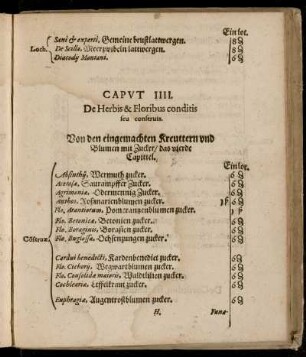 Ein lot.
Sani & experti, Gemeine brustlattwergen. 8 ß
Loch. De Scilla, Meerzwibeln lattwergen. 8 ß
Diacody Montani. 6 ß
CAPVT IIII.
De Herbis & Floribus conditis
seu conseruis.
Von den eingemachten Kreuttern vnd
Blumen mit Zucker / das vierde
Capittel.
Ein lot.
Absinthij, Wermuth zucker. 6 ß
Acetosæ, Saurampffer Zucker. 6 ß
Agrimoniæ, Odermennig Zucker. 6 ß
Anthos, Rosmarienblumen zucker.
Flo. Arantiorum, Pomerantzenblumen zucker.
Flo. Betonicæ, Betonien zucker. 6 ß
Flo. Boraginis, Borasien zucker. 6 ß
Flo. Buglossæ, Ochsenzungen zucker. 6 ß
Cardui benedicti, Kardenbenedict zucker. 6 ß
Flo. Cichorij, Wegwart blumen zucker. 6 ß
Flo. Consolidæ maioris, zucker. 6 ß
Cochleariæ, Löffelkraut zucker. 6 ß
Euphragiæ, Augentrostblumen zucker. 6 ß
H. Fuma-